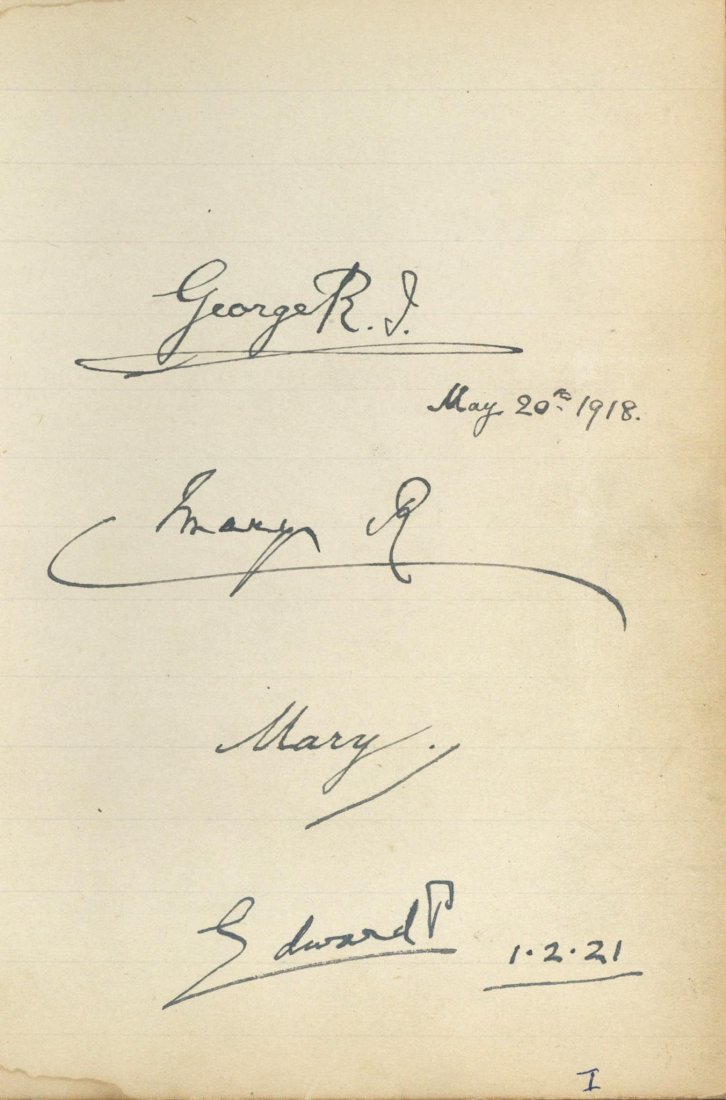 George R. I.
May 20th 1918.
Mary R
Mary.
Edward P
1·2·21
I